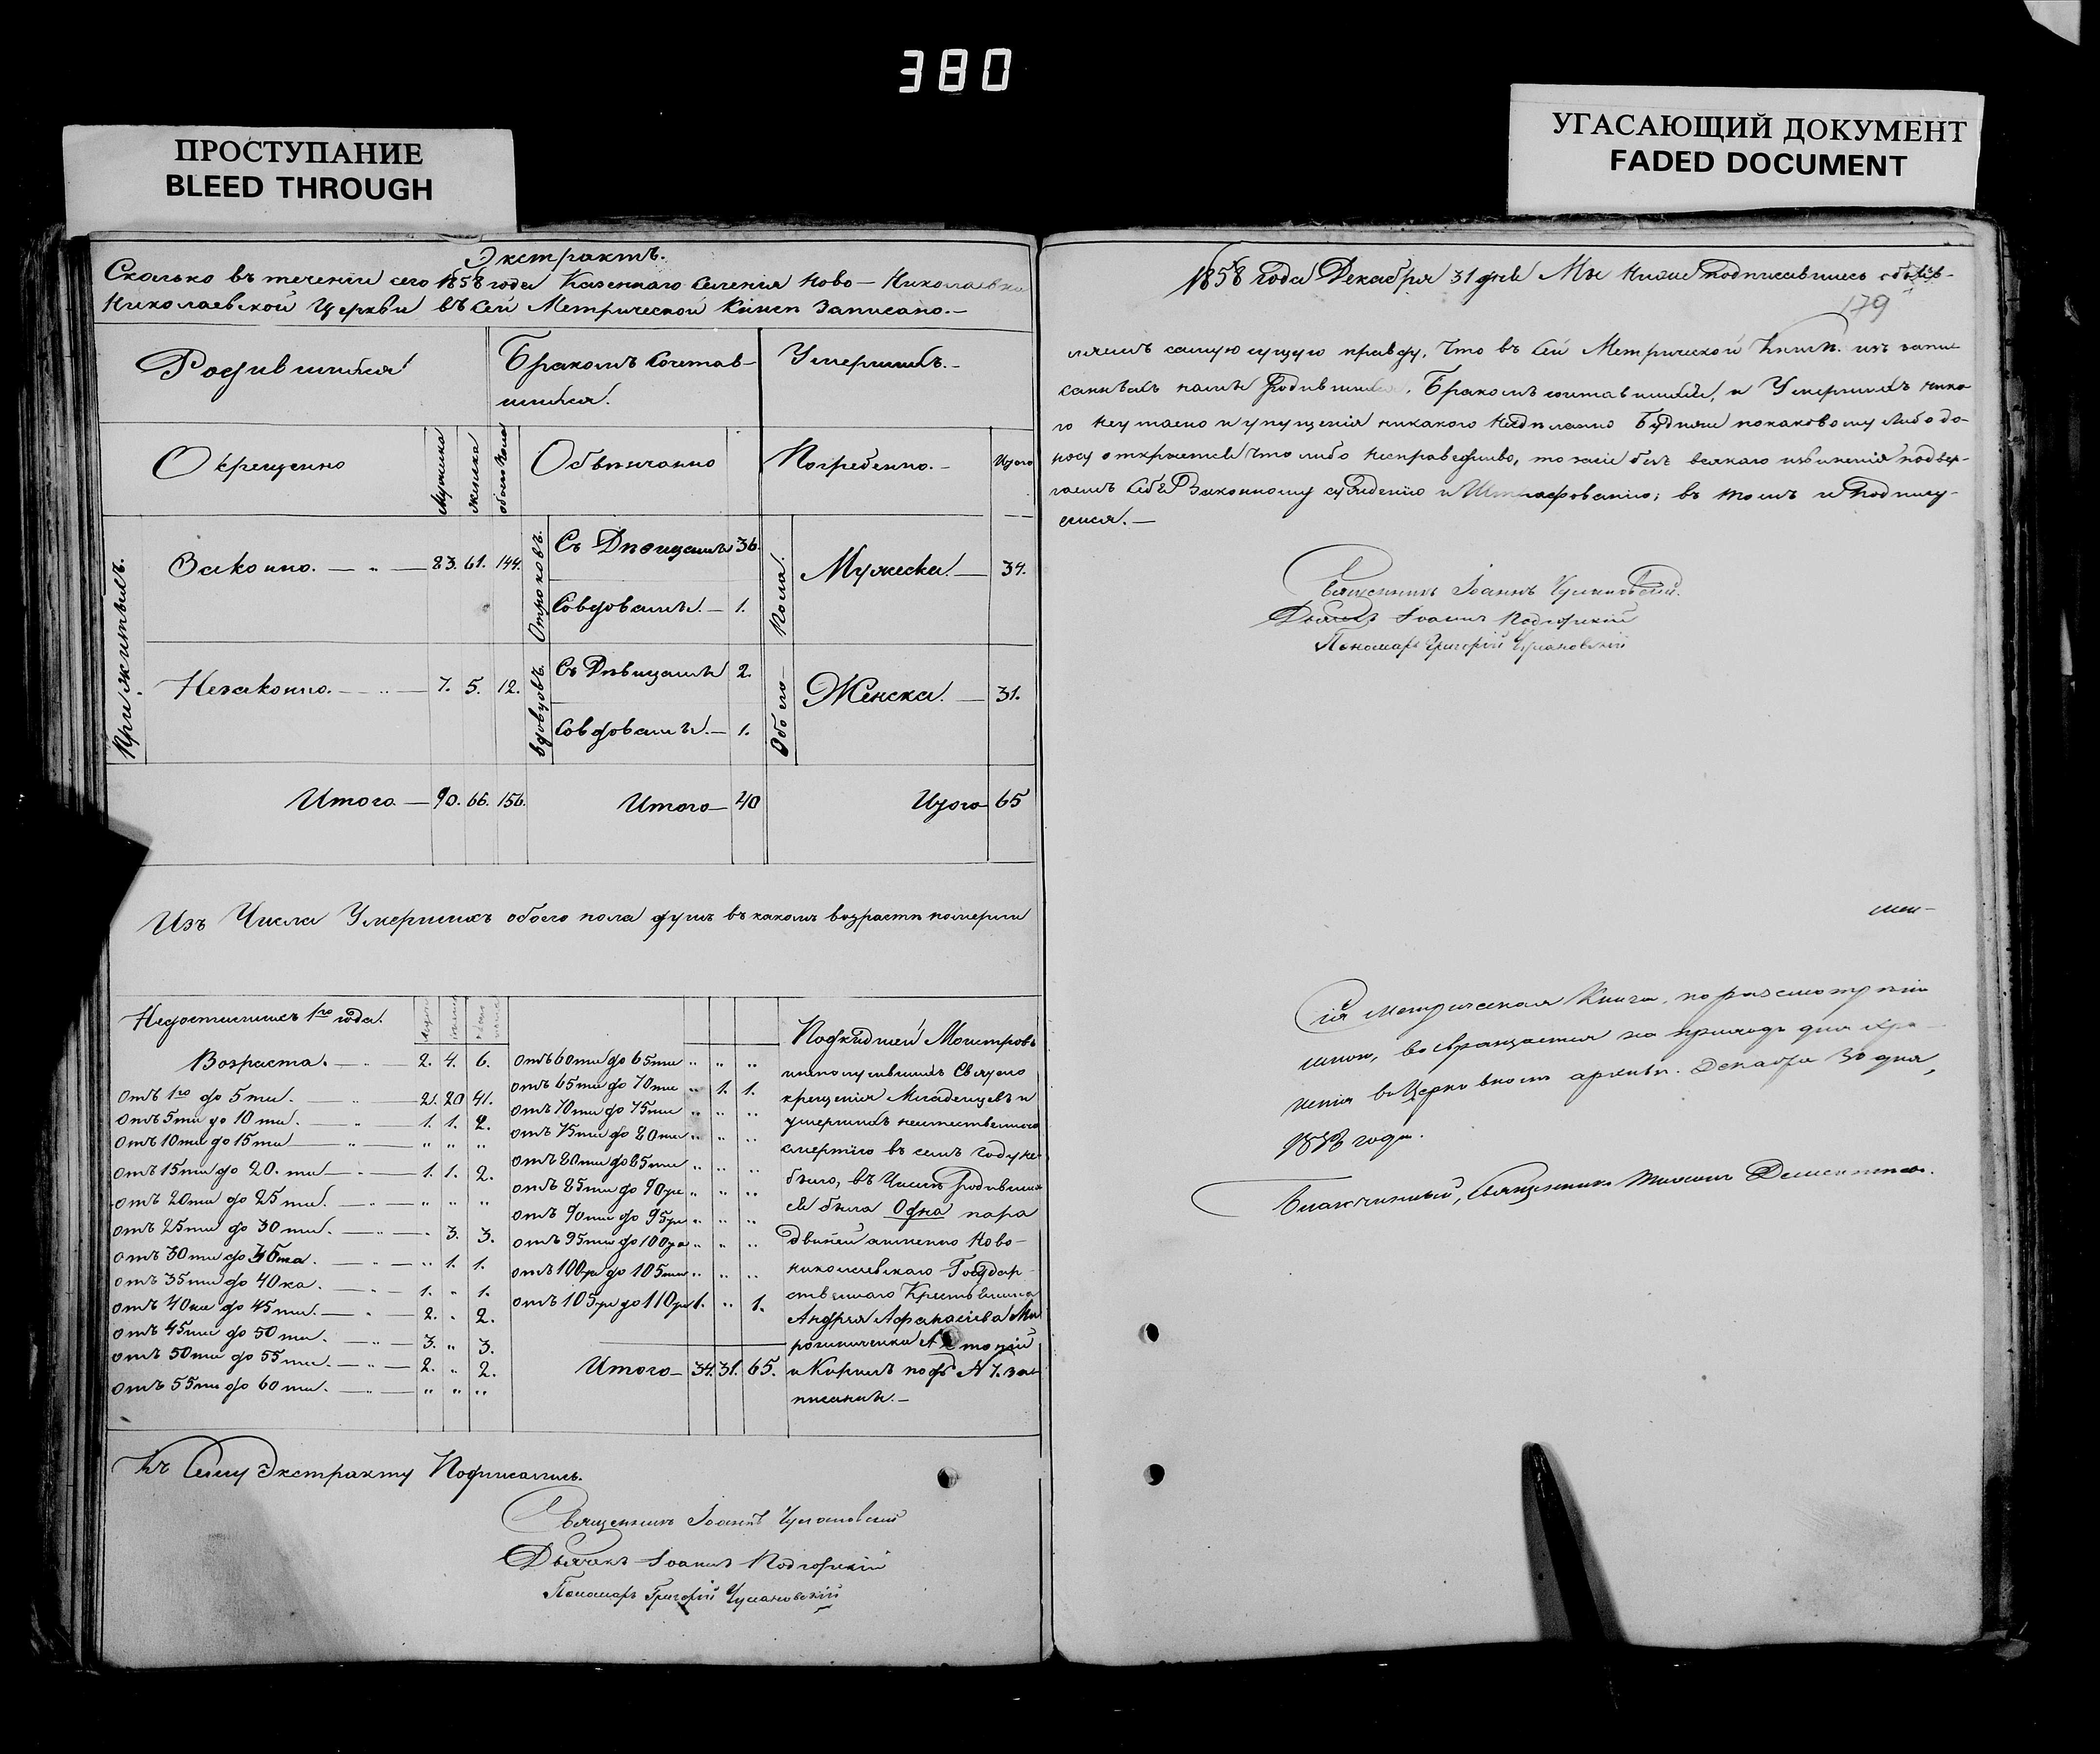 380
ПРОСТУПАНИЕ
BLEED THROUGH
УГАСАЮЩИЙ ДОКУМЕНТ
FADED DOCUMENT
Экстрактъ.
Сколько въ теченіи сего 1858 года Казеннаго Селенія Ново-Николаевки
Николаевской Церкви въ сей Метрической Книгѣ Записано.—
Родившихся
Бракомъ Сочетав-
шихся.
Умершихъ.-
Окрещенно
Мужска
женска
обоего пола
Обвѣнчанно
Погребенно.-
Итого
При жительст.
Законно. — „ — 83. 61. 144.
Отроковъ.
Съ Дѣвицами 36.
Совдовами. — 1.
Обоего — Пола.
Мужеска. — 34.
Незаконно. — „ — 7. 5. 12.
вдовцовъ.
Съ Дѣвицами 2.
Совдовами. — 1.
Женска. — 31.
Итого — 90. 66. 156.
Итого — 40
Итого 65
Изъ Числа Умершихъ обоего пола душъ въ какомъ возрастѣ померли
Недостигшихъ 1го года.
Возраста. — „ 2. 4. 6.
Отъ 1го до 5ти. — „ — 21. 20 41.
отъ 5ти до 10ти. — „ 1. 1. 2.
отъ 10ти до 15ти — „ „ „ „
отъ 15ти до 20.ти — „ — 1. 1. 2.
отъ 20ти до 25ти. — „ — „ „ „
отъ 25ти до 30ти. — „ — „ 3. 3.
отъ 30ти до 35ти. — „ — „ 1. 1.
отъ 35ти до 40ка. — „ — 1. „ 1.
отъ 40ка до 45ти. — „ 2. „ 2.
отъ 45ти до 50ти. — „ — 3. „ 3.
отъ 50ти до 55ти. — „ — 2. „ 2.
отъ 55ти до 60ти. — „ — „ „ „
отъ 60ти до 65ти „ „ „
отъ 65ти до 70ти „ 1. 1.
отъ 70ти до 75ти „ „ „
отъ 75ти до 80ти „ „ „
отъ 80ти до 85ти „ „ „
отъ 85ти до 90та „ „ „
отъ 90ти до 95ти „ „ „
отъ 95ти до 100та „ „ „
отъ 100та до 105ти „ „ „
отъ 105ти до 110ти 1. „ 1.
Итого — 34. 31. 65.
Подкидшей Монстровъ
неполучившихъ Святаго
крещенія Младенцевъ и
умершихъ неестественною
смертію въ семъ году не
было, въ Числѣ Родивших
ся была Одна пара
двойней именно Ново-
николаевскаго Государ-
ственнаго Крестьянина
Андрея Афанасіева Ми
рошниченка Антоній
и Кириллъ подъ № 7. за
писаны.—
Къ Сему Экстракту Подписались.
Священникъ Іоаннъ Чумановскій
Дьячекъ Іоаннъ Подгорскій
Пономарь Григорій Чумановскій
1858 года Декабря 31 дня Мы Ниже подписавшіесь объяв-
179
ляемъ самую сущую правду, что въ сей Метрической Книгѣ изъ запи
санныхъ нами Родившихся, Бракомъ сочетавшихся, и Умершихъ нико
го неутаено и упущенія никакого неДѣланно Будеже покаковому либо до-
носу откроется что либо несправедливо, то засіе безъ всякаго извиненія подвер-
гаемъ себя Законному сужденію и Штрафованію; въ томъ и Подпису-
емся. —
Священникъ Іоаннъ Чумановскій.
Дьячекъ Іоаннъ Подгорскій
Пономарь Григорій Чумановскій
Сія Метрическая Книга, поразсмотреніи
мною, возвращается на приходъ для хра-
ненія въ Церковномъ архивѣ. Декабря 30 дня,
1858 года.
Благочинный, Священникъ